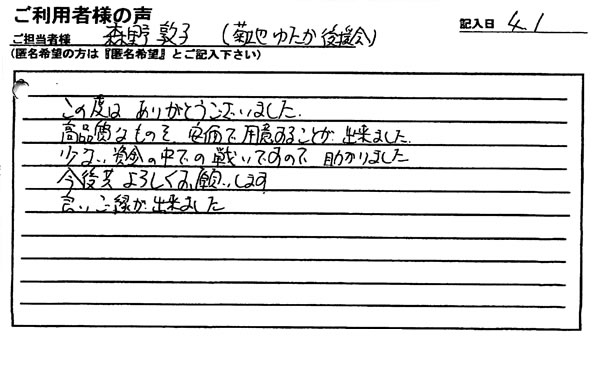 ご利用者様の声
記入日 4.1
ご担当者様 森野 敦子 (菊地ゆたか後援会)
(匿名希望の方は『匿名希望』とご記入下さい)
この度は ありがとうございました.
高品質なものを、安価で用意することが出来ました.
少ない資金の中での戦いですので 助かりました
今後共よろしくお願いします
良いご縁が出来ました